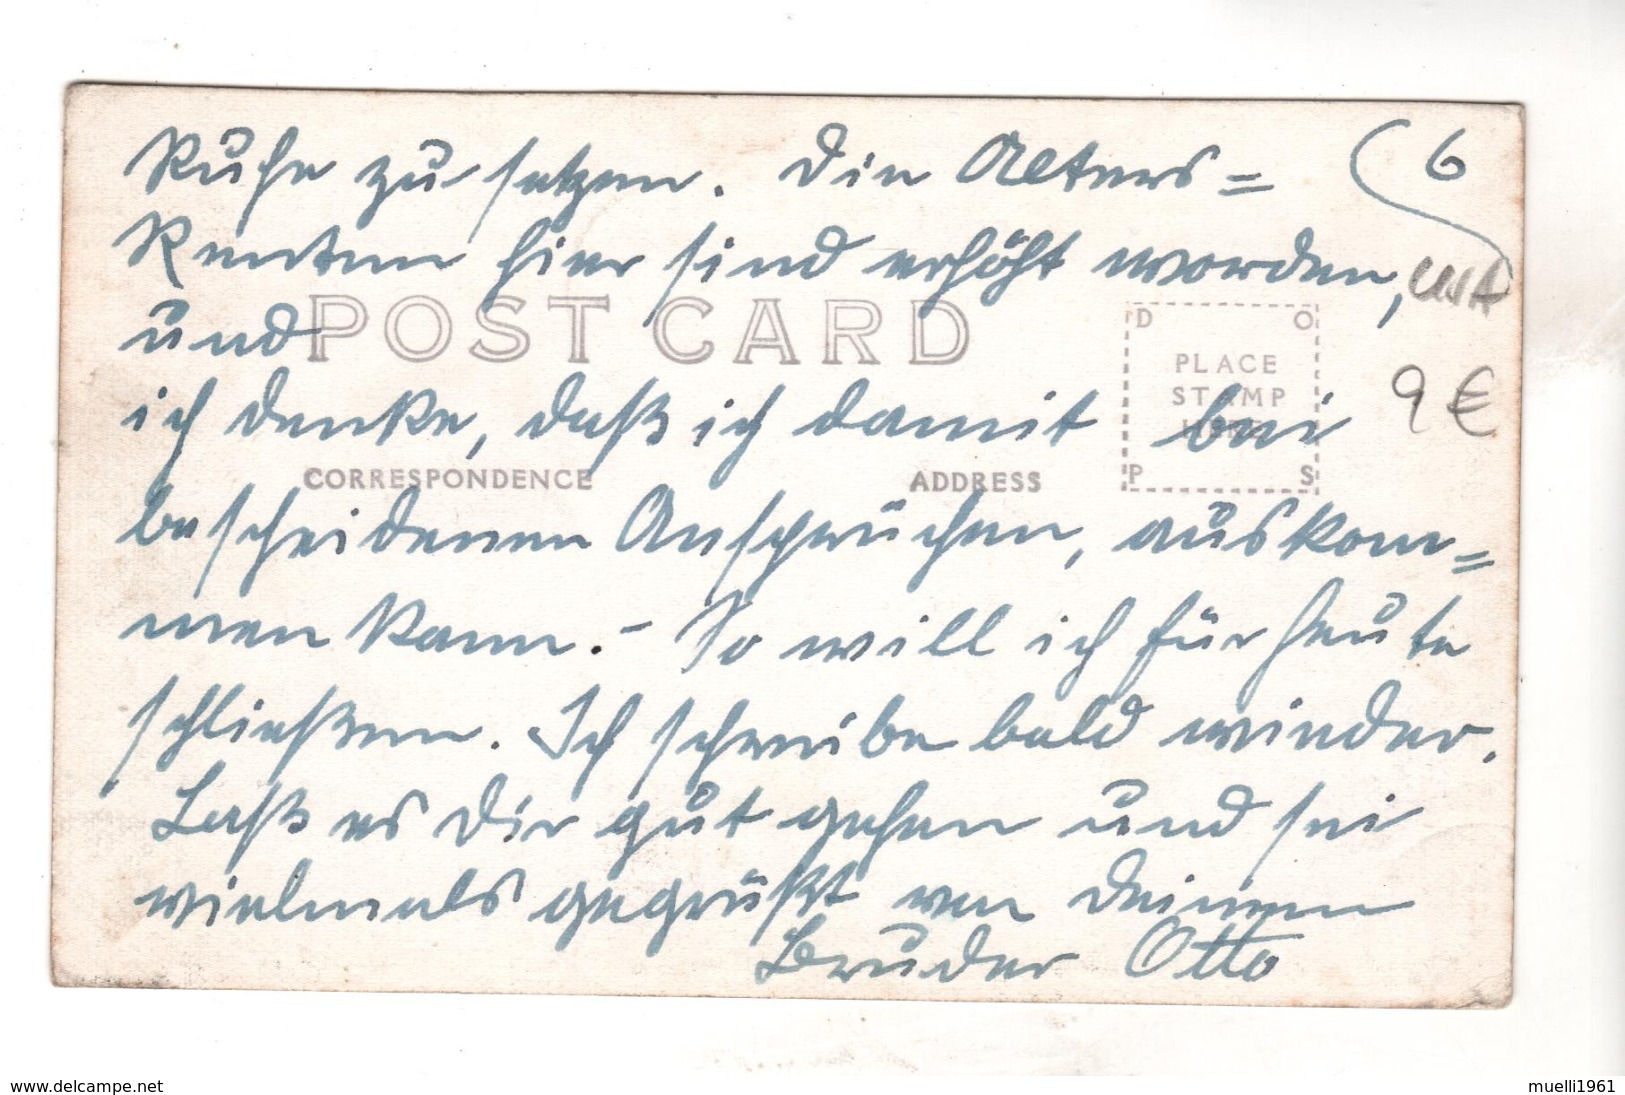 6
Ruhe zu setzen. Die Alters=
Renten hier sind erhöht worden,
und
ich denke, daß ich damit bei
bescheidenen Ansprüchen, auskom=
men kann. - So will ich für heute
schließen. Ich schreibe bald wieder.
Laß es Dir gut gehen und sei
vielmals gegrüßt von Deinem
Bruder Otto
POST CARD
CORRESPONDENCE
ADDRESS
D O
PLACE
STAMP
HERE
P S
9 €
www.delcampe.net
muelli1961